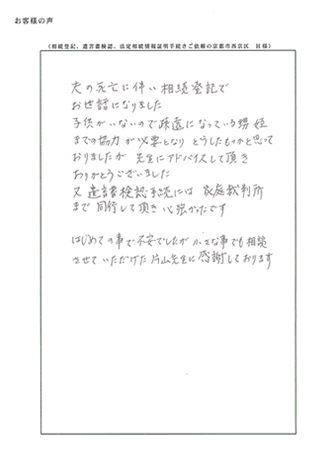 お客様の声
（相続登記、遺言書検認、法定相続情報証明手続きご依頼の京都市西京区　H様）
夫の死亡に伴い相続登記で
お世話になりました
子供がいないので疎遠になっている甥姪
までの協力が必要となりどうしたものかと思って
おりましたが先生にアドバイスして頂き
ありがとうございました
又遺言書検認手続には家庭裁判所
まで同行して頂き心強かったです
はじめての事で不安でしたが小さな事でも相談
させていただけた片山先生に感謝しております